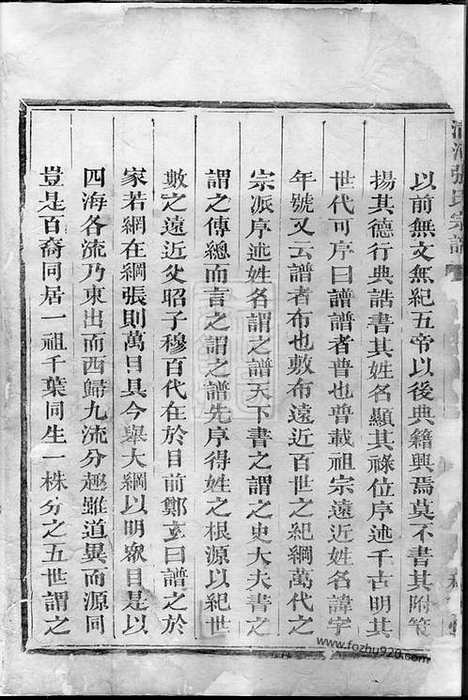 清河張氏宗譜
以前無文無紀五帝以後典籍興焉莫不書其附筞
揚其德行典誥書其姓名顯其祿位序述千古明其
世代可序曰譜譜者普也普載祖宗遠近姓名諱字
年號又云譜者布也敷布遠近百世之紀綱萬代之
宗派序述姓名謂之譜天下書之謂之史大夫書之
謂之傳總而言之謂之譜先序得姓之根源以紀世
數之遠近父昭子穆百代在於目前鄭玄曰譜之於
家若網在綱張則萬目具今舉大綱以明衆目是以
四海各流乃東出而西歸九流分趨雖道異而源同
豈是百裔同居一祖千葉同生一株分之五世謂之
www.fozhu920.com